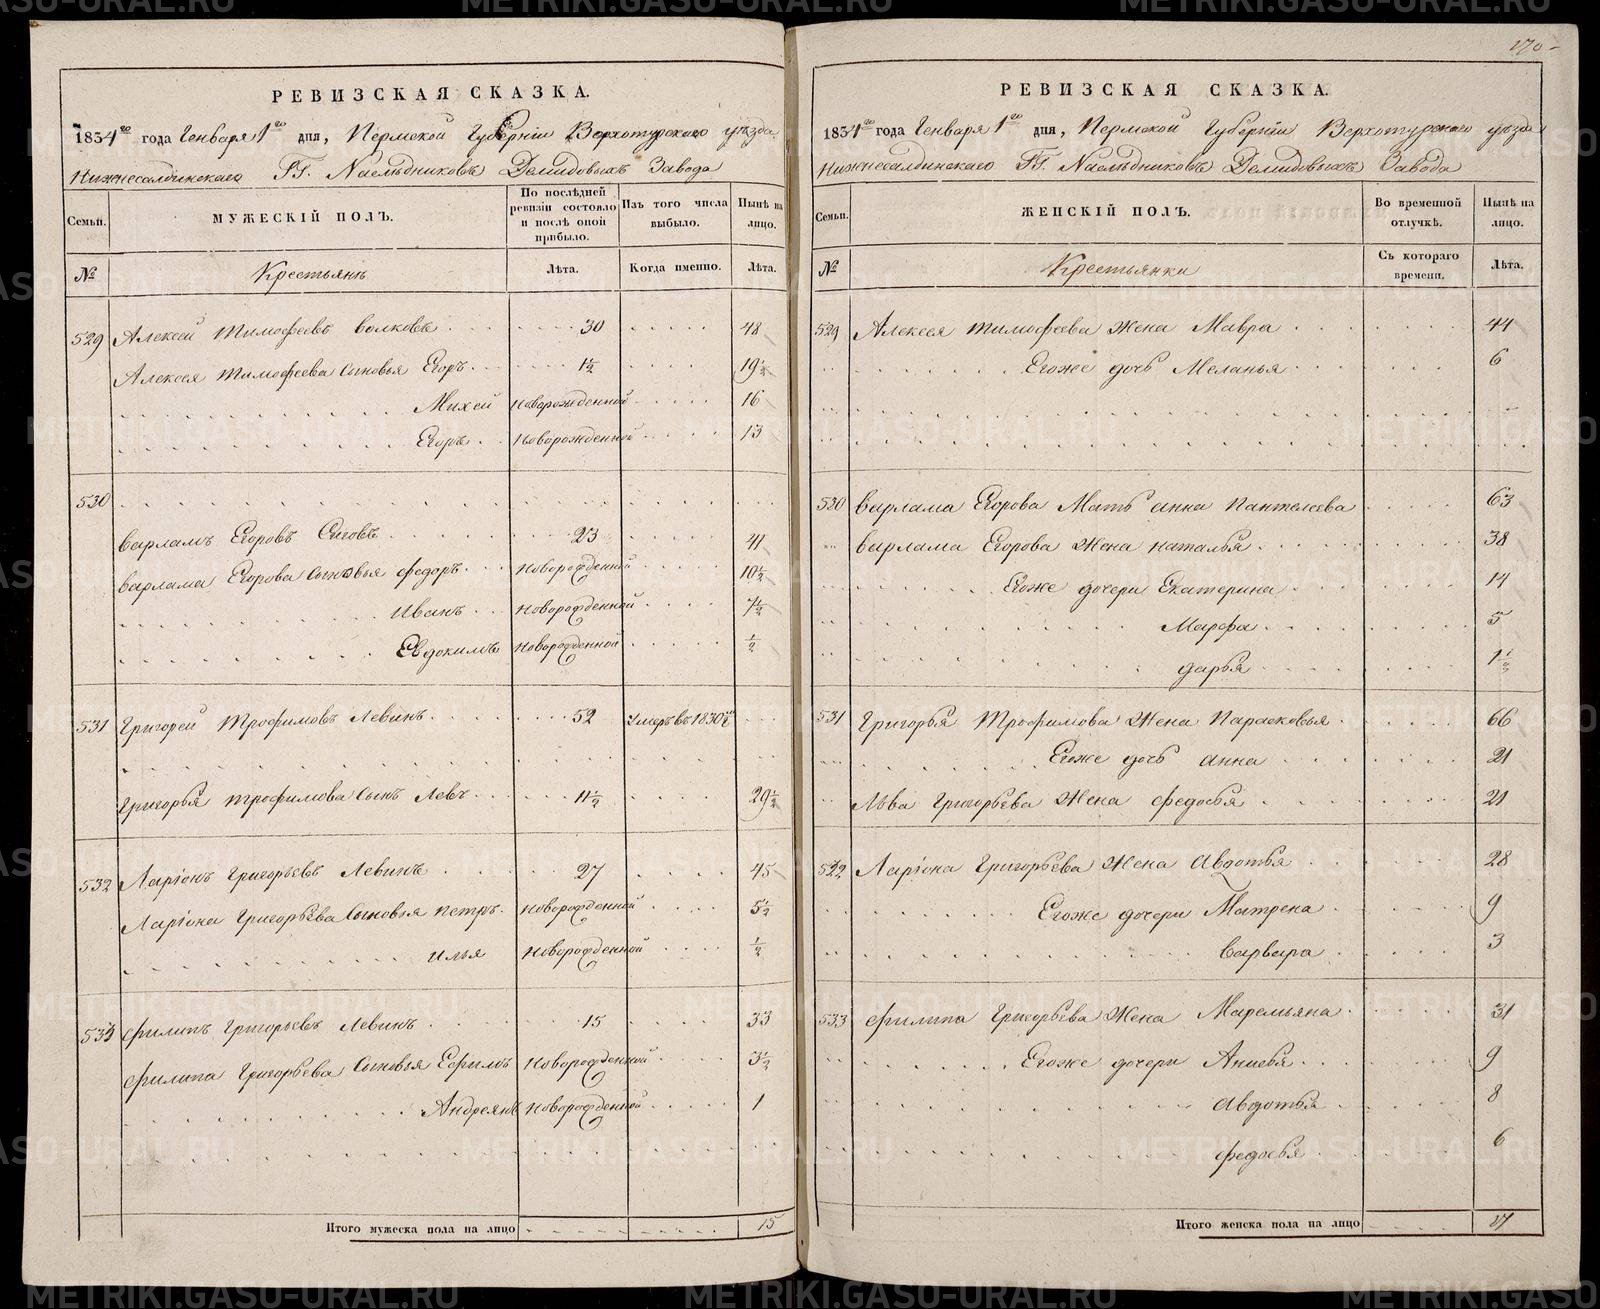 270
РЕВИЗСКАЯ СКАЗКА.
1834го года Генваря 1го дня, Пермской Губерніи Верхотурскаго уѣзда
Нижнесалдинскаго ГГ. Наслѣдниковъ Демидовыхъ Завода
Семьи. МУЖЕСКІЙ ПОЛЪ. По послѣдней ревизіи состояло и послѣ оной прибыло. Изъ того числа выбыло. Нынѣ на лицо.
№ Крестьянъ Лѣта. Когда именно. Лѣта.
529 Алексей Тимофеевъ Волковъ 30 48
Алексея Тимофеева Сыновья Егоръ 1½ 19½
Михей Новорожденной 16
Егоръ Новорожденной 13
530
Варламъ Егоровъ Сиговъ 23 41
Варлама Егорова Сыновья Федоръ Новорожденной 10½
Иванъ Новорожденной 7½
Евдокимъ Новорожденной ½
531 Григорей Трофимовъ Левинъ 52 Умеръ въ 1830
Григорья Трофимова Сынъ Левъ 11½ 29½
532 Ларіонъ Григорьевъ Левинъ 27 45
Ларіона Григорьева Сыновья Петръ Новорожденной 5½
Илья Новорожденной ½
533 Филипъ Григорьевъ Левинъ 15 33
Филипа Григорьева Сыновья Ефимъ Новорожденной 3½
Андреянъ Новорожденной 1
Итого мужеска пола на лицо 15
РЕВИЗСКАЯ СКАЗКА.
1834го года Генваря 1го дня, Пермской Губерніи Верхотурскаго уѣзда
Нижнесалдинскаго ГГ. Наслѣдниковъ Демидовыхъ Завода
Семьи. ЖЕНСКІЙ ПОЛЪ. Во временной отлучкѣ. Нынѣ на лицо.
№ Крестьянки Съ котораго времени. Лѣта.
529 Алексея Тимофеева Жена Мавра 44
Егоже дочь Меланья 6
530 Варлама Егорова Мать Анна Пантелеева 63
Варлама Егорова Жена Наталья 38
Егоже дочери Екатерина 14
Марфа 5
Дарья 1½
531 Григорья Трофимова Жена Парасковья 66
Егоже дочь Анна 21
Льва Григорьева Жена Федосья 21
532 Ларіона Григорьева Жена Авдотья 28
Егоже дочери Матрена 9
Варвара 3
533 Филипа Григорьева Жена Маремьяна 31
Егоже дочери Анисья 9
Авдотья 8
Федосья 6
Итого женска пола на лицо 17
METRIKI.GASO-URAL.RU